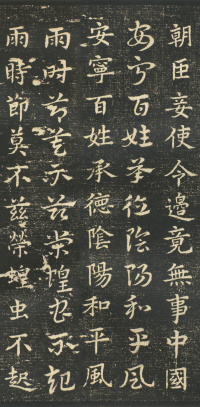 朝臣妾使令邊竟無事中國
安寧百姓承德陰陽和平風
安寧百姓承德陰陽和平風
雨時節莫不茲榮蝗虫不起
雨時節莫不茲榮蝗虫不起